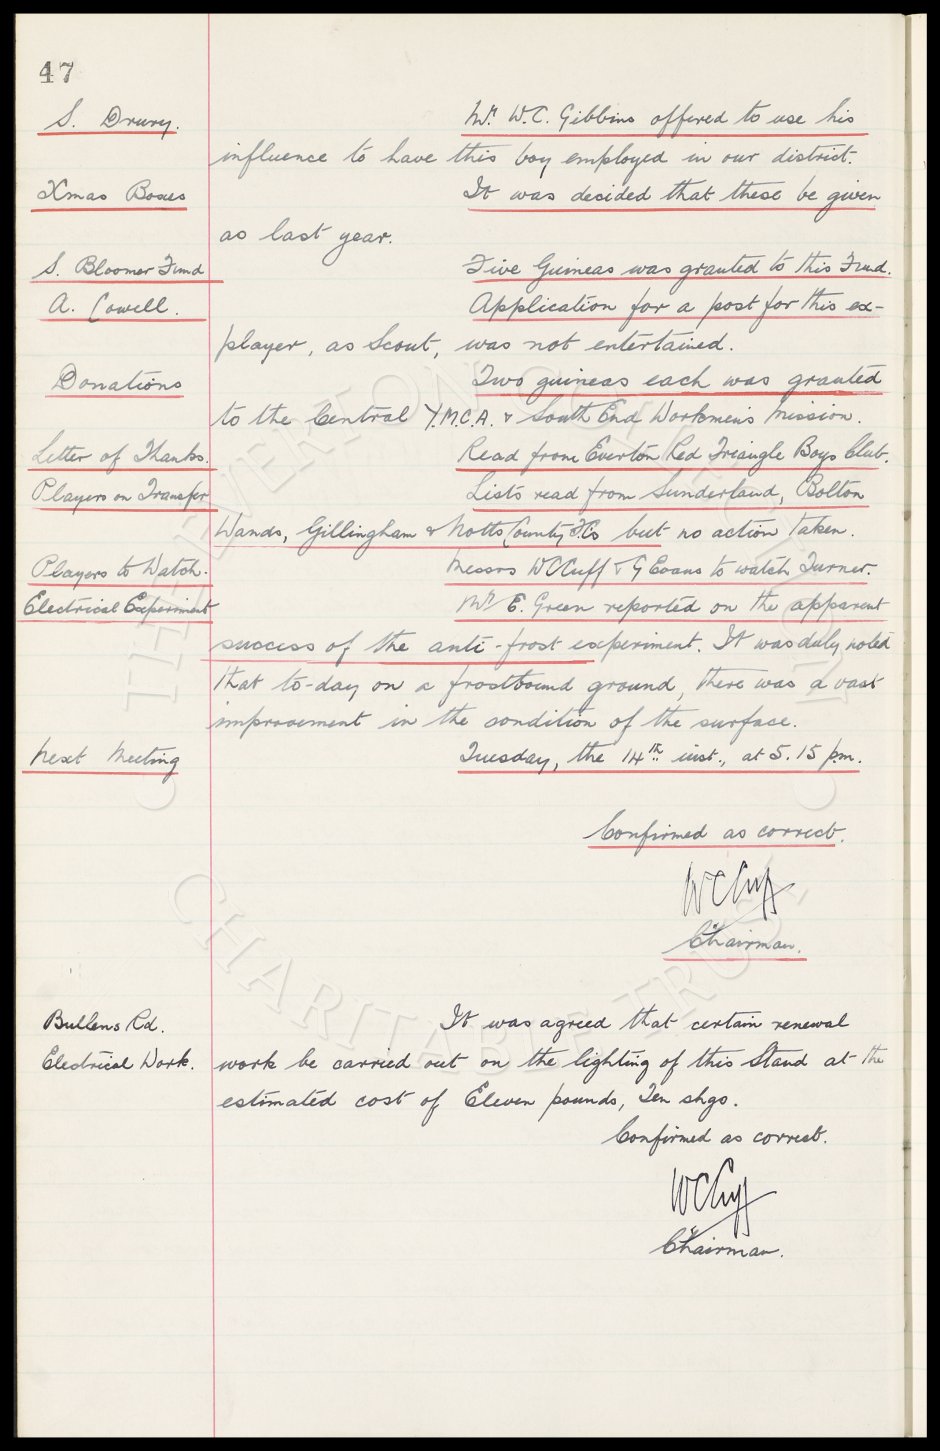 47
S. Drury. Mr. W.C. Gibbins offered to use his
influence to have this boy employed in our district.
Xmas Boxes It was decided that these be given
as last year.
S. Bloomer Fund Five Guineas was granted to this Fund.
A. Cowell. Application for a post for this ex-
player, as Scout, was not entertained.
Donations Two guineas each was granted
to the Central Y.M.C.A. & South End Workmen's Mission.
Letter of Thanks. Read from Everton Red Triangle Boys Club.
Players on Transfer Lists read from Sunderland, Bolton
Wands, Gillingham & Notts County FCs but no action taken.
Players to Watch. Messrs WCCuff & G Evans to watch Turner.
Electrical Experiment Mr. E. Green reported on the apparent
success of the anti-frost experiment. It was duly noted
that to-day on a frostbound ground, there was a vast
improvement in the condition of the surface.
Next Meeting Tuesday, the 14th inst., at 5.15 p.m.
Confirmed as correct.
WCCuff
Chairman.
Bullens Rd. It was agreed that certain renewal
Electrical Work. work be carried out on the lighting of this Stand at the
estimated cost of Eleven pounds, Ten shgs.
Confirmed as correct.
WCCuff
Chairman.
THE EVERTON COLLECTION
CHARITABLE TRUST